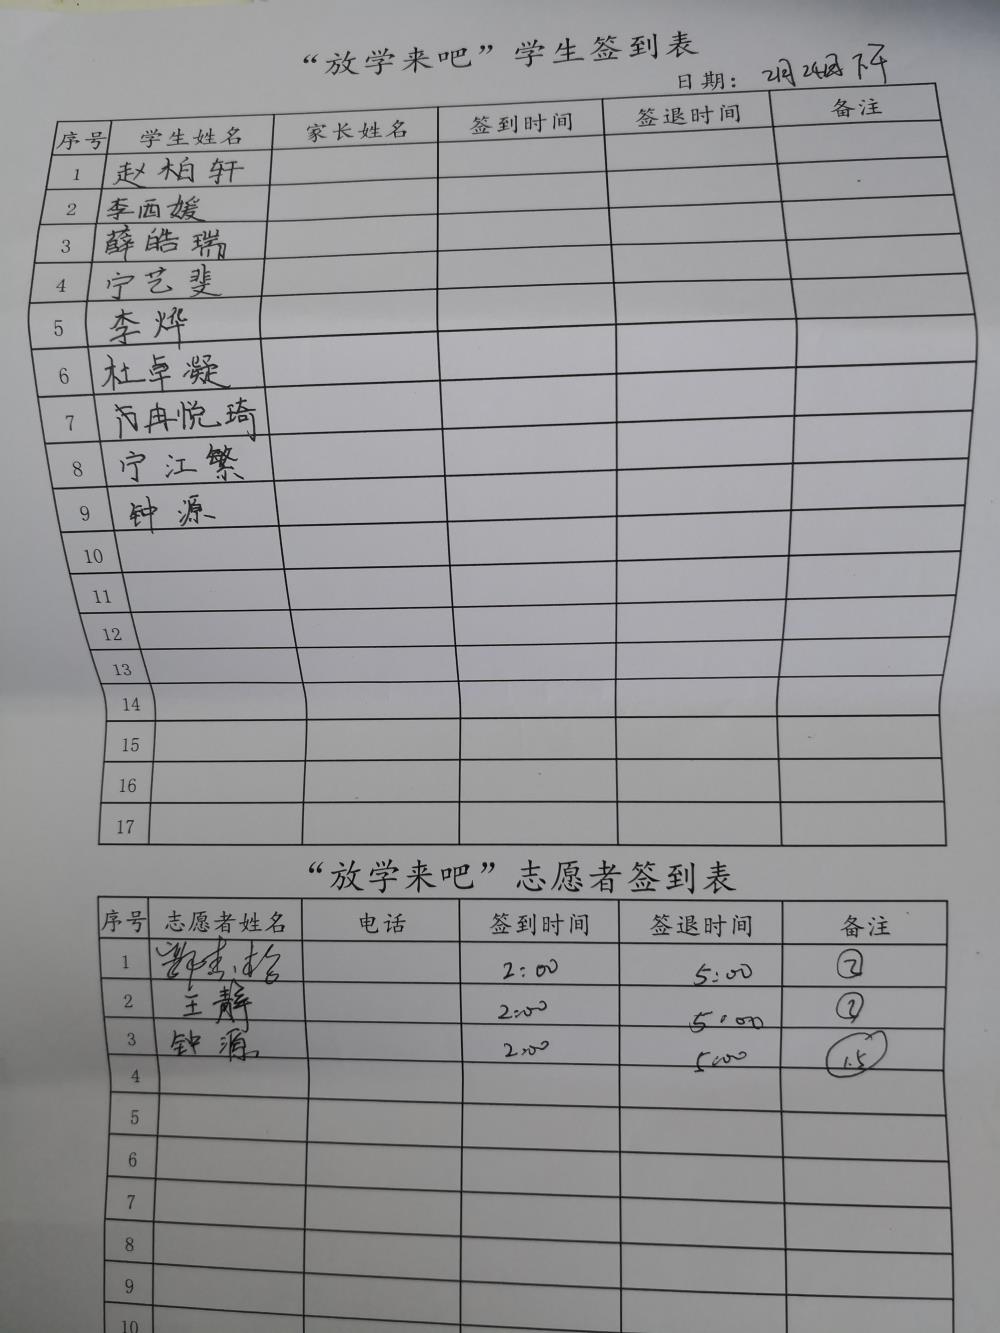 “放学来吧”学生签到表
日期：2月24日下午
序号 学生姓名 家长姓名 签到时间 签退时间 备注
1 赵柏轩
2 李西媛
3 薛皓瑞
4 宁艺斐
5 李烨
6 杜卓凝
7 冉悦琦
8 宁江繁
9 钟源
10
11
12
13
14
15
16
17
“放学来吧”志愿者签到表
序号 志愿者姓名 电话 签到时间 签退时间 备注
1 2:00 5:00 2
2 王静 2:00 5:00 2
3 钟源 2:00 5:00 1.5
4
5
6
7
8
9
10